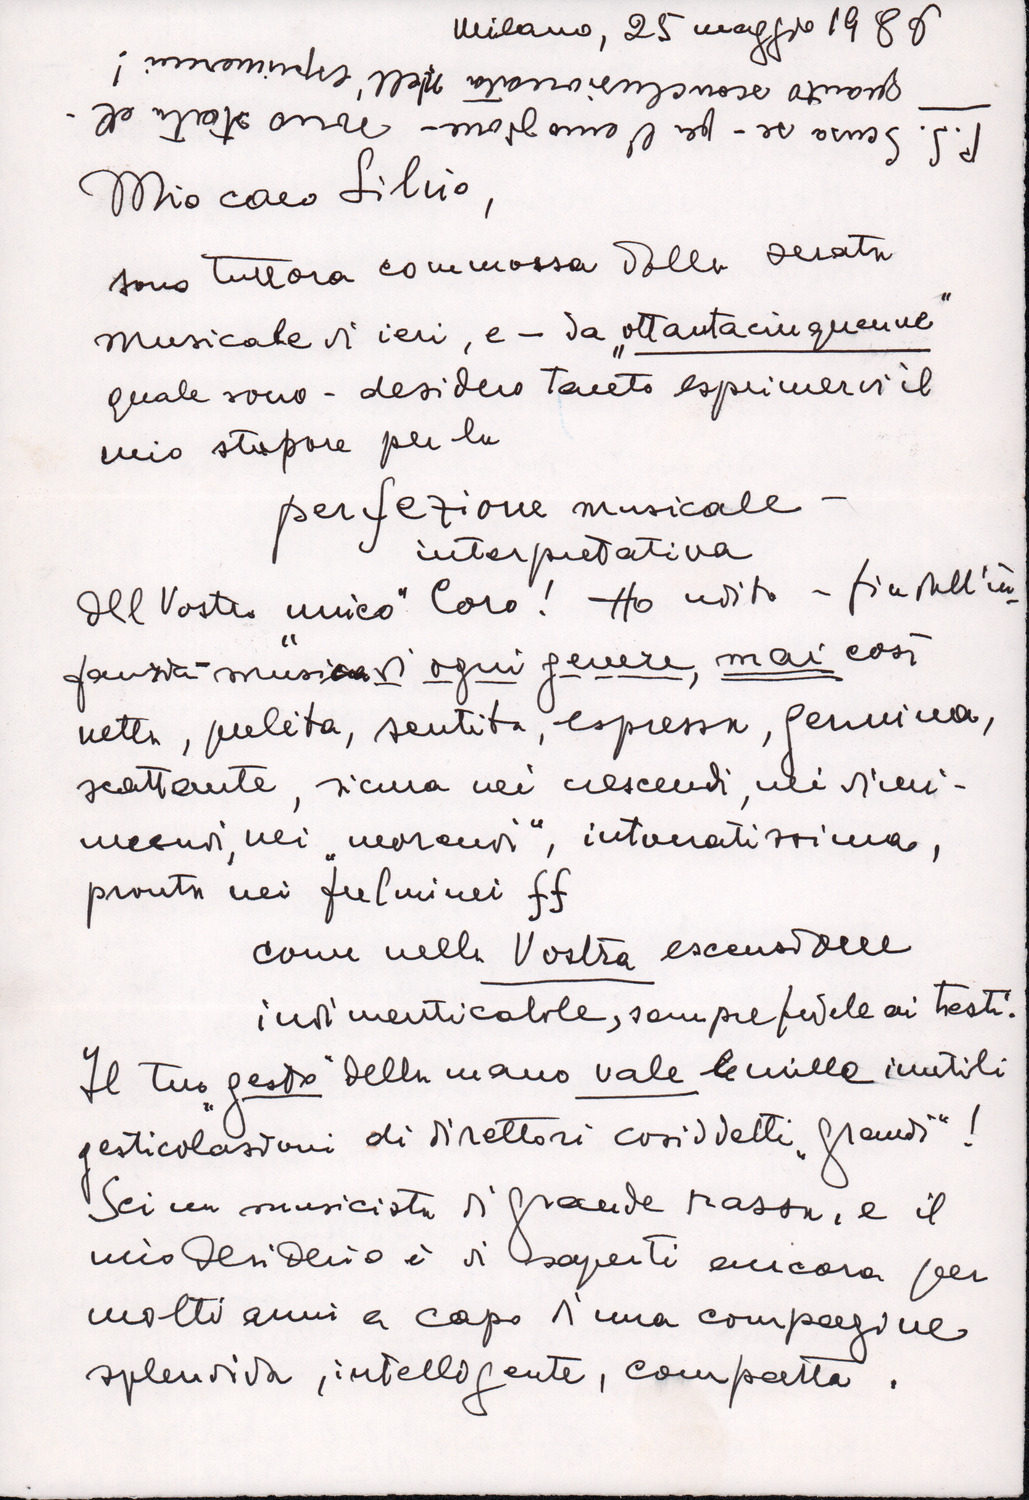 Milano, 25 maggio 1986
Mio caro Silvio,
sono tuttora commossa dalla serata
musicale di ieri, e – da „ottantacinquenne“
quale sono – desidero tanto esprimervi il
mio stupore per la
perfezione musicale –
interpretativa
del Vostro „unico“ Coro! Ho udito – fin dall'in-
fanzia – musica di ogni genere, mai così
netta, pulita, sentita, espressa, genuina,
scattante, sicura nei crescendi, nei dimi-
nuendi, nei „morendi“, intonatissima,
pronta nei fulminei ff
come nella Vostra
indimenticabile, sempre fedele ai testi.
Il tuo „gesto“ della mano vale le mille inutili
gesticolazioni di direttori cosiddetti „grandi“!
Sei un musicista di grande razza, e il
mio desiderio è di saperti ancora per
molti anni a capo d'una compagine
splendida, intelligente, compatta.
P.S. Scusa se – per l'emozione – sono stata al-
quanto sconclusionata nell'esprimermi!